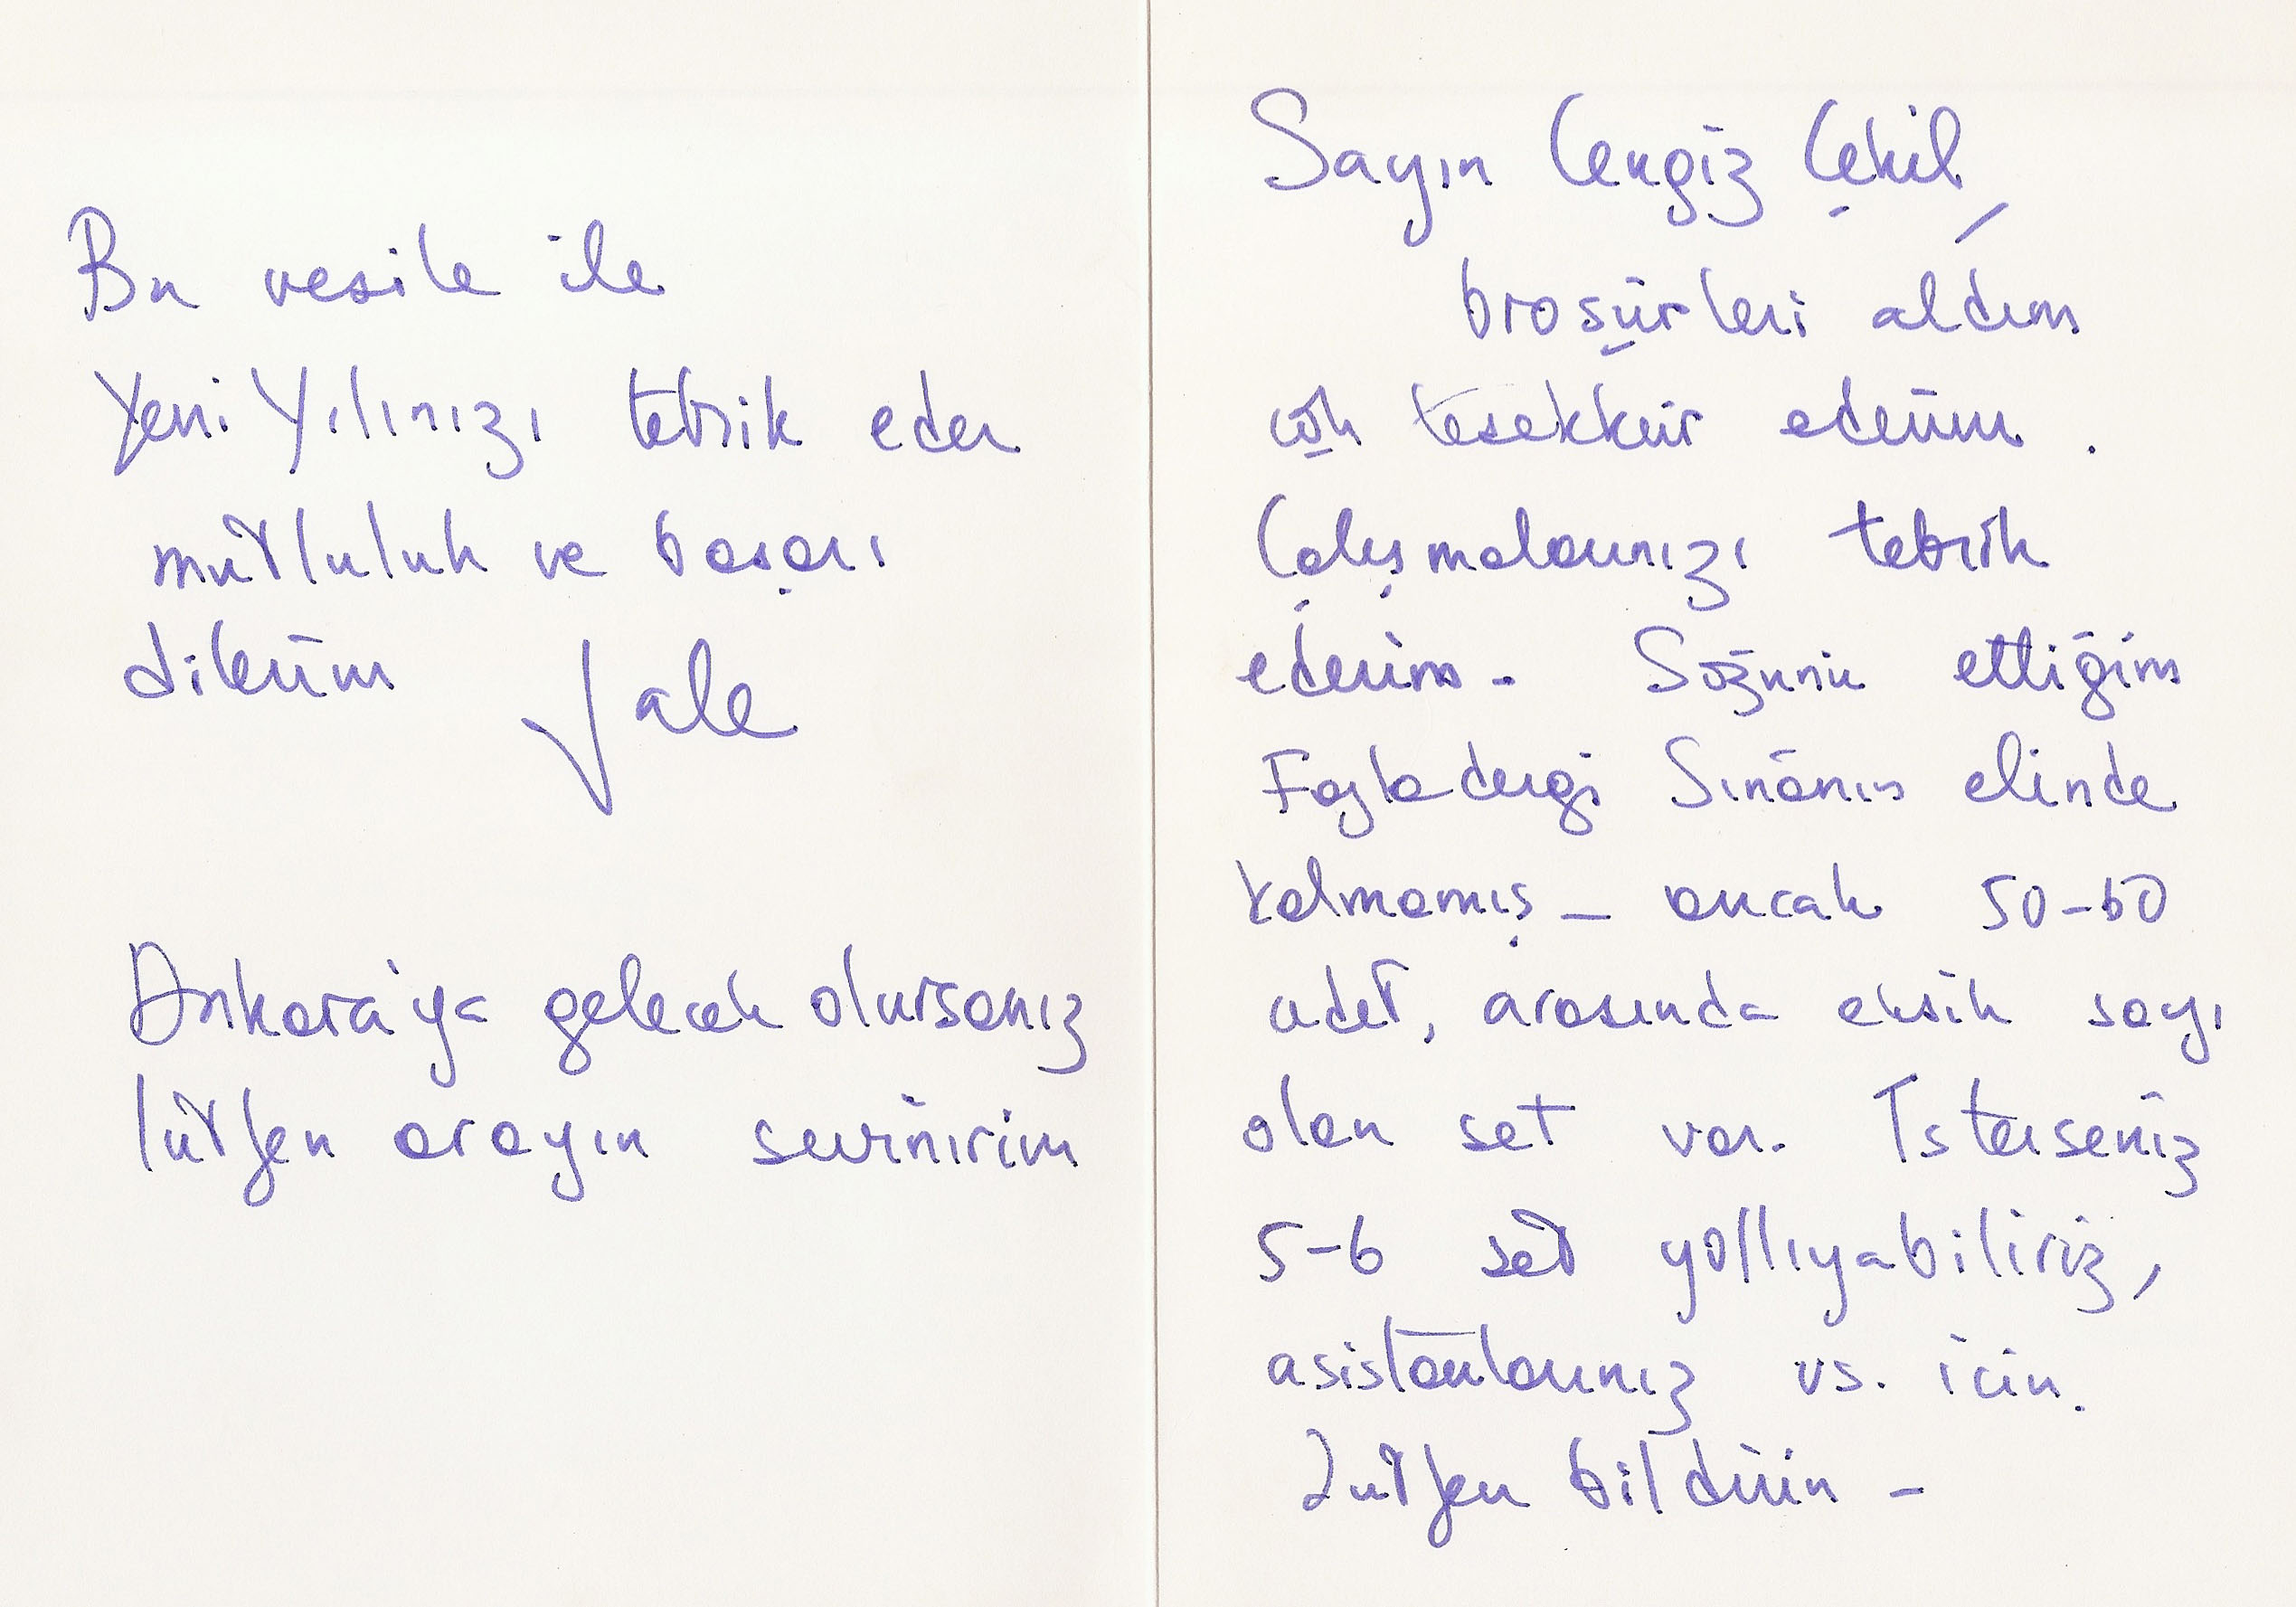 Sayın Cengiz Çekil,
broşürleri aldım
çok teşekkür ederim.
Çalışmalarınızı tebrik
ederim - Sözünü ettiğim
Fazla dergi Sinanın elinde
kalmamış - ancak 50-60
adet, arasında eksik sayı
olan set var. İsterseniz
5-6 set yollıyabiliriz,
asistanlarınız vs. için.
Lütfen bildirin -
Bu vesile ile
Yeni Yılınızı tebrik eder
mutluluk ve başarı
dilerim Jale
Ankara'ya gelecek olursanız
lütfen arayın sevinirim